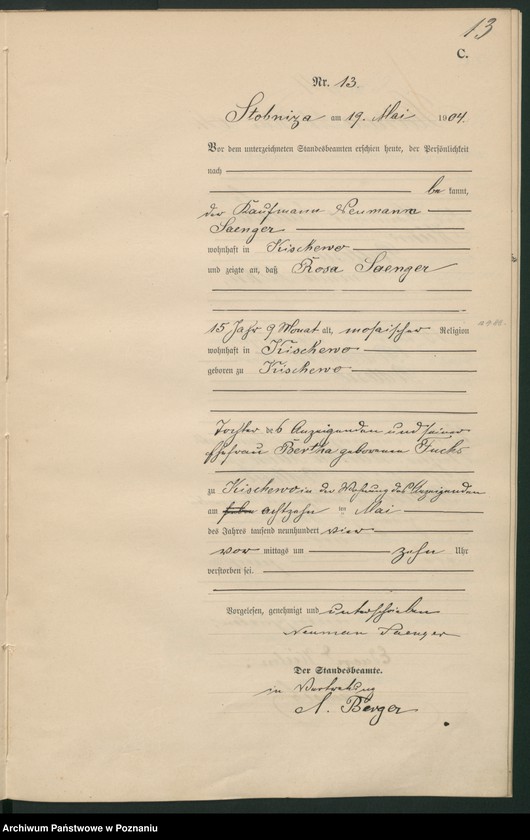 13
C.
Nr. 13.
Stobniza am 19. Mai 1904.
Vor dem unterzeichneten Standesbeamten erschien heute, der Persönlichkeit
nach
be kannt,
der Kaufmann Neumann
Saenger
wohnhaft in Kischewo
und zeigte an, daß Rosa Saenger
15 Jahr 9 Monat alt, mosaischer Religion
wohnhaft in Kischewo
geboren zu Kischewo
Tochter des Anzeigenden und seiner
Ehefrau Bertha geborenen Fuchs
zu Kischewo in der Wohnung des Anzeigenden
am achtzehn ten Mai
des Jahres tausend neunhundert vier
vor mittags um zehn Uhr
verstorben sei.
Vorgelesen, genehmigt und unterschrieben
Neuman Saenger
Der Standesbeamte.
in Vertretung
A. Berger
Archiwum Państwowe w Poznaniu